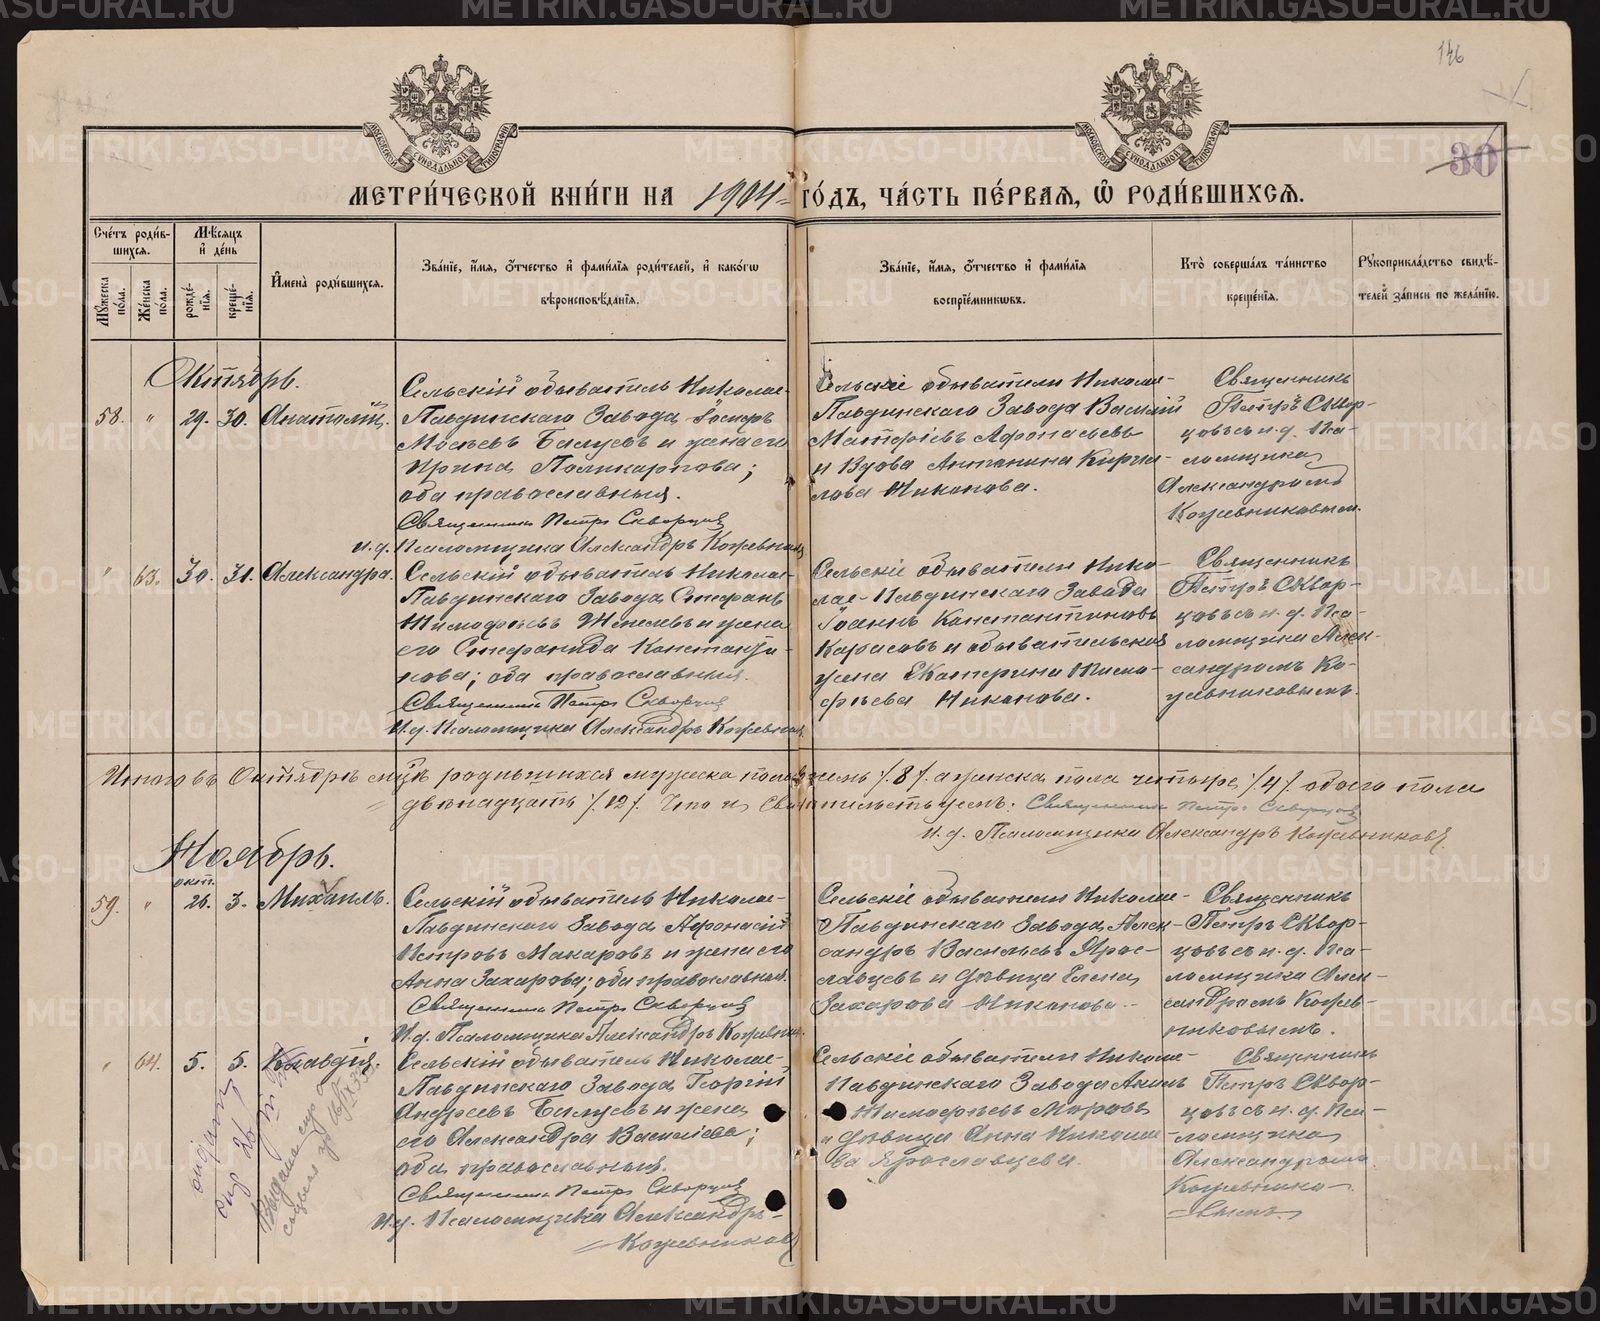 146
30
МЕТРИ́ЧЕСКОЙ КНИ́ГИ НА 1904 ГО́ДЪ, ЧА́СТЬ ПЕ́РВАЯ, Ѽ РОДИ́ВШИХСЯ.
Сче́тъ роди́в-
шихся.
Мѣ́сяцъ
и́ де́нь
Му́жеска по́ла.
Же́нска по́ла.
рожде́-
нїя.
креще́-
нїя.
И҆мена̀ роди́вшихся.
Зва́нїе, и҆́мя, ѻ҆́тчество и҆ фами́лїя роди́телей, и҆ како́гѡ
вѣроисповѣ́данїя.
Зва́нїе, и҆́мя, ѻ҆́тчество и҆ фами́лїя
воспрїе́мникѡвъ.
Кто̀ соверша́лъ та́инство
креще́нїя.
Рꙋкоприкла́дство свидѣ́-
телей за́писи по жела́нїю.
Октябрь.
58. " 29. 30. Анатолій.
Сельскій обыватель Николае-
Павдинскаго Завода
Моисѣевъ и жена его
Ирина Поликарпова;
оба православныя.
Священникъ Петръ Скворцовъ
и.д. Псаломщика Александръ Кожевник
Сельскіе обыватели Николае-
Павдинскаго Завода Василій
Афонасьевъ
и Вдова Антонина Кирил-
лова Никонова.
Священникъ
Петръ Сквор-
цовъ съ и.д. Пса-
ломщика
Александромъ
Кожевниковым.
" 63. 30. 31. Александра.
Сельскій обыватель Николае-
Павдинскаго Завода Стефанъ
Тимофѣевъ и жена
его Стефанида Константи-
нова; оба православныя.
Священникъ Петръ Скворцовъ
И.д. Псаломщика Александръ Кожевник
Сельскіе обыватели Нико-
лае-Павдинскаго Завода
Іоаннъ Константиновъ
Карасовъ и обывательская
жена Екатерина Тимо-
фѣева Никонова.
Священникъ
Петръ Сквор-
цовъ съ и.д. Пса-
ломщика Алек-
сандромъ Ко-
жевниковымъ.
Итого въ Октябрѣ м-цѣ родившихся мужеска пола восемь /8/. а женска пола четыре /4/ обоего пола
двѣнадцать /12/. Что и свидѣтельствуемъ: Священникъ Петръ Скворцовъ
И.д. Псаломщика Александръ Кожевниковъ.
Ноябрь.
окт.
59. " 26. 3. Михаилъ.
Сельскій обыватель Николае-
Павдинскаго Завода Афонасій
Петровъ Макаровъ и жена его
Анна Захарова; оба православныя.
Священникъ Петръ Скворцовъ
И.д. Псаломщика Александръ Кожевник
Сельскіе обыватели Николае-
Павдинскаго Завода Алек-
сандръ Васильевъ Ярос-
лавцевъ и дѣвица Елена
Захарова Никонова.
Священникъ
Петръ Сквор-
цовъ съ и.д. Пса-
ломщика Алек-
сандромъ Кожев-
никовымъ.
" 64. 5. 5. Клавдія.
Сельскій обыватель Николае-
Павдинскаго Завода Георгій
Андреевъ и жена
его Александра Василіева;
оба православныя.
Священникъ Петръ Скворцовъ
И.д. Псаломщика Александръ
Кожевниковъ
Сельскіе обыватели Николае-
Павдинскаго Завода
Тимофѣевъ
и дѣвица Анна Николае-
ва Ярославцева.
Священникъ
Петръ Сквор-
цовъ съ и.д. Пса-
ломщика
Александромъ
Кожевнико-
вымъ.
METRIKI.GASO-URAL.RU